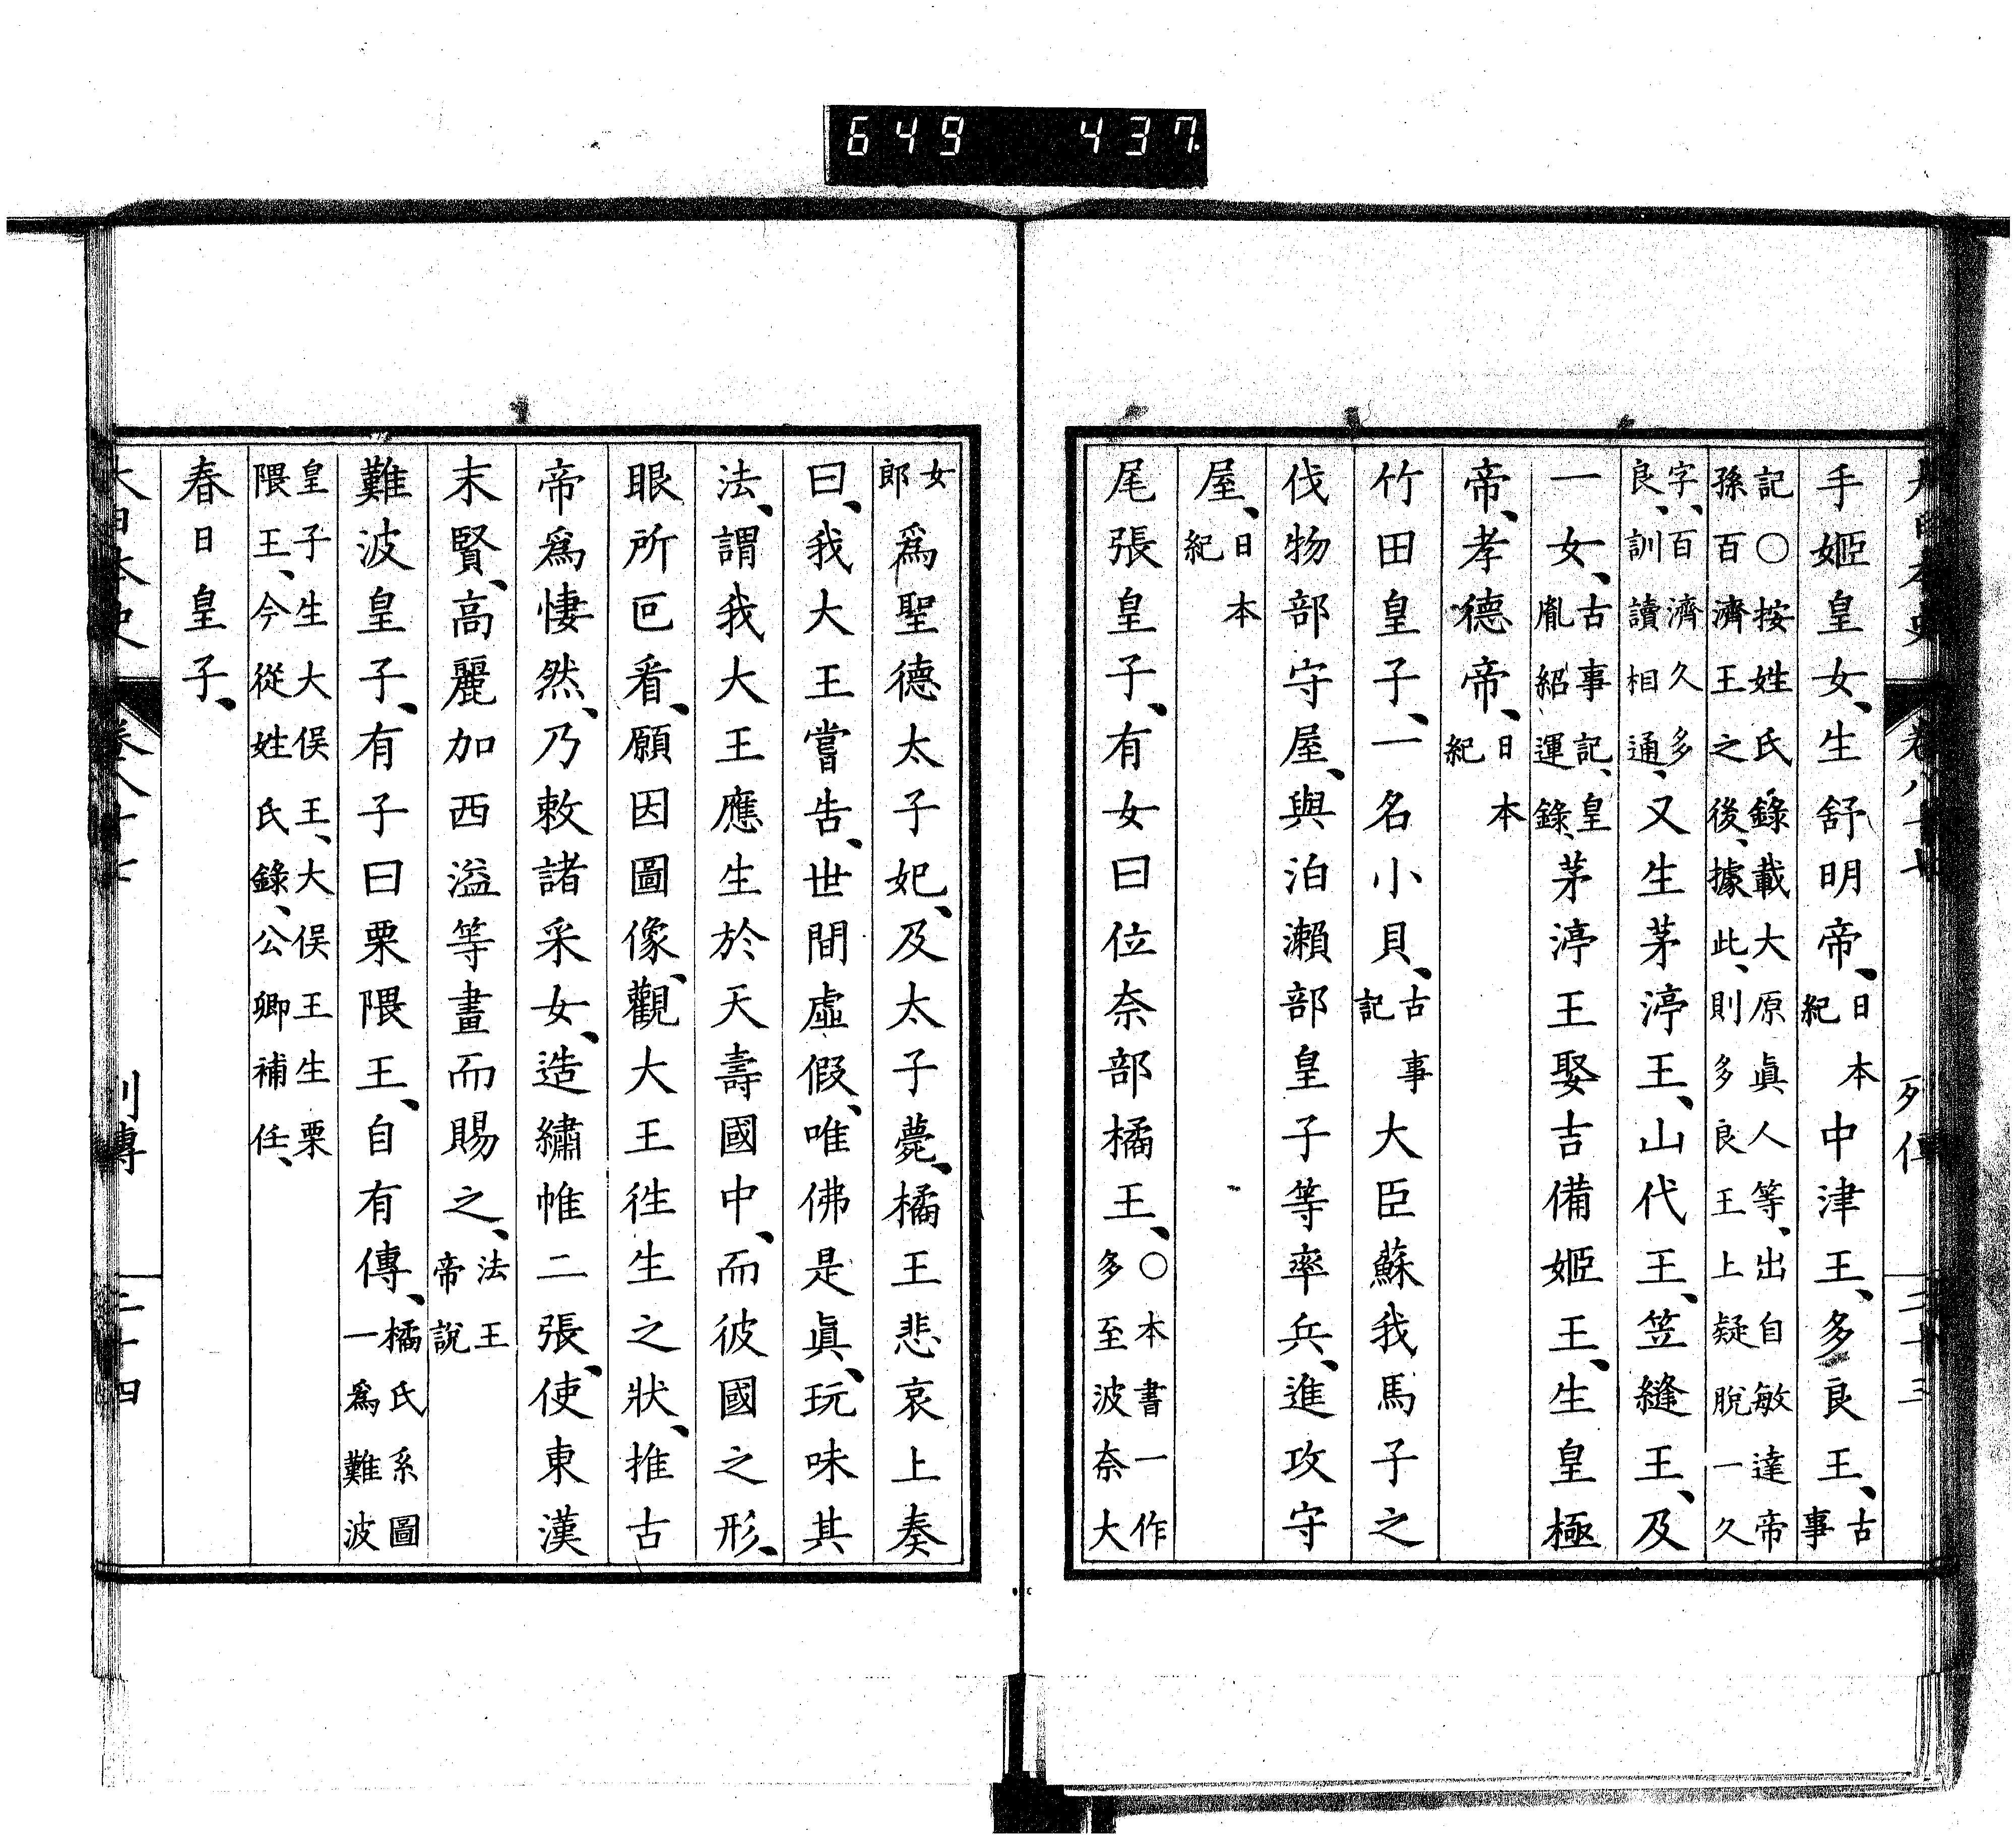 649 437.
大日本史 卷八十七 列傳 二十三
手姬皇女、生舒明帝、日本紀中津王、多良王、古事
記〇按姓氏錄載大原眞人等、出自敏達帝孫百濟王之後、據此、則多良王上疑脫一久
字、百濟久多良、訓讀相通、又生茅渟王、山代王、笠縫王、及
一女、古事記、皇胤紹運錄、茅渟王娶吉備姬王、生皇極
帝、孝德帝、日本紀
竹田皇子、一名小貝、古事記大臣蘇我馬子之
伐物部守屋、與泊瀨部皇子等率兵、進攻守
屋、日本紀
尾張皇子、有女曰位奈部橘王、〇本書一作多至波奈大
女郎爲聖德太子妃、及太子薨、橘王悲哀上奏
曰、我大王嘗告、世間虛假、唯佛是眞、玩味其
法、謂我大王應生於天壽國中、而彼國之形、
眼所叵看、願因圖像、觀大王徃生之狀、推古
帝爲悽然、乃敕諸采女、造繡帷二張、使東漢
末賢、高麗加西溢等畫而賜之、法王帝說
難波皇子、有子曰栗隈王、自有傳、橘氏系圖一爲難波
皇子生大俣王、大俣王生栗隈王、今從姓氏錄、公卿補任、
春日皇子、
大日本史 卷八十七 列傳 二十四